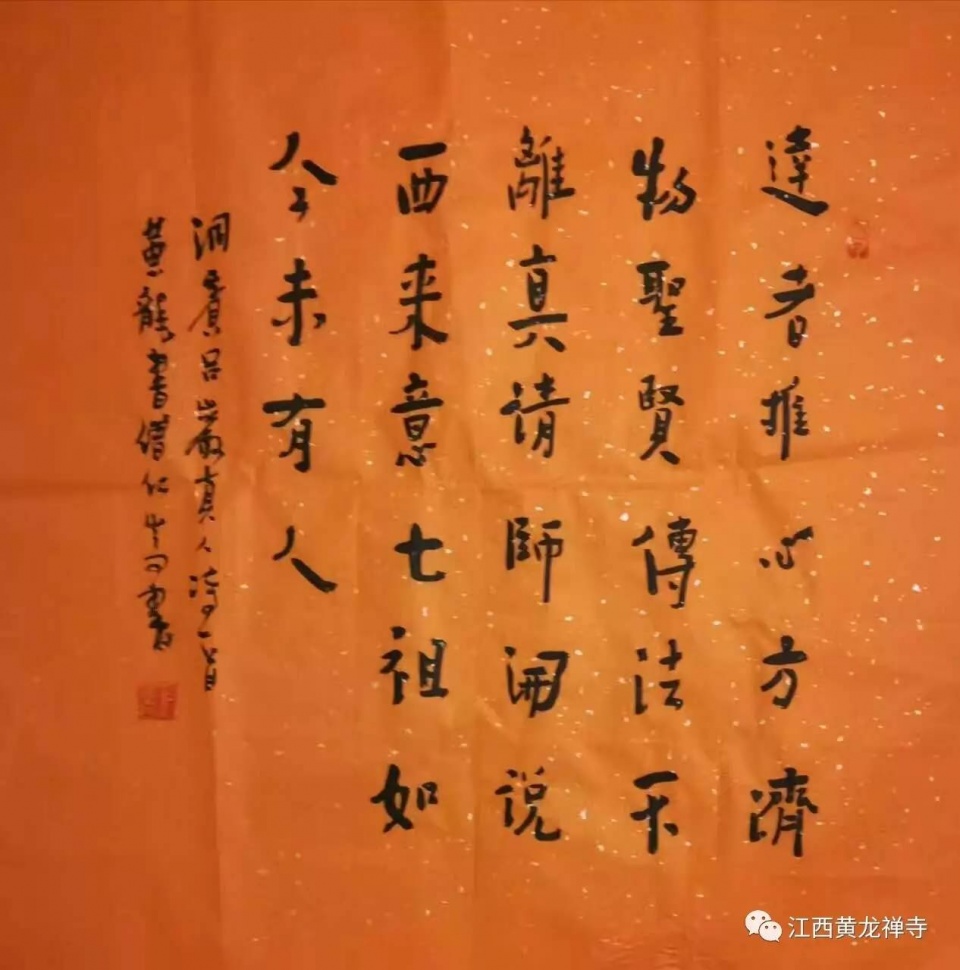 達者推心方濟
物聖賢傳法不
離真請師開説
西来意七祖如
今未有人
洞賓吕巌真人詩一首
黄龍書僧仁書
江西黄龙禅寺